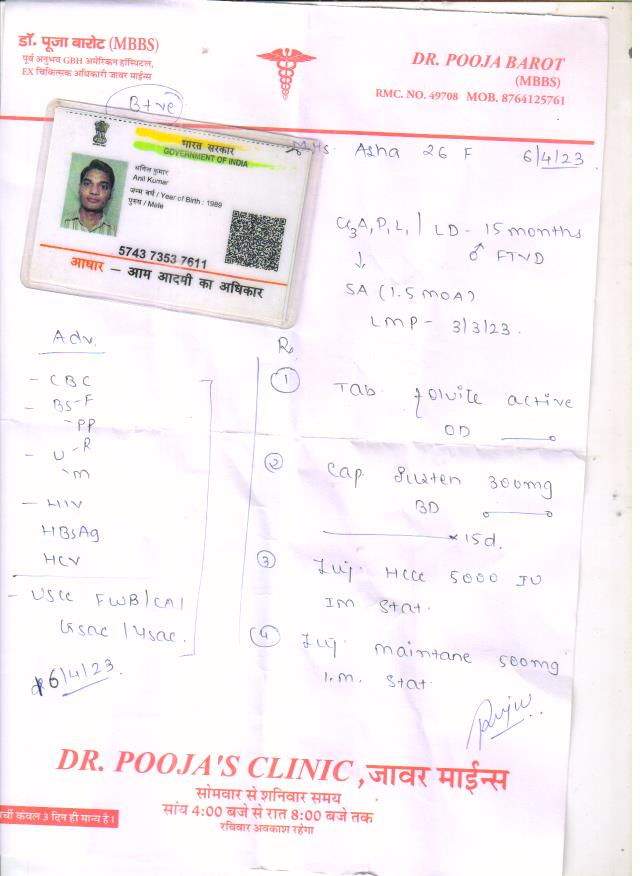 डॉ. पूजा बारोट (MBBS)
पूर्व अनुभव GBH अमेरिकन हॉस्पिटल,
EX चिकित्सक अधिकारी जावर माईन्स
DR. POOJA BAROT
(MBBS)
RMC. NO. 49708 MOB. 8764125761
B+ve
भारत सरकार
GOVERNMENT OF INDIA
अनिल कुमार
Anil Kumar
जन्म वर्ष / Year of Birth : 1989
पुरुष / Male
5743 7353 7611
आधार – आम आदमी का अधिकार
Mrs. Asha 26 F 6/4/23
G3 A1 P1 L1 / LD - 15 months
♂ FTVD
↓
SA (1.5 MOA)
LMP - 3/3/23.
Adv.
- CBC
- BS-F
-PP
- U-R
-M
- HIV
HBsAg
HCV
- USG FWB/CA/
Gsac / Ysac.
6/4/23.
R
① Tab. folvite active
OD
② Cap 300mg
BD
× 15d.
③ Inj. HCG 5000 IU
IM stat.
④ Inj. maintane 500mg
I.m. stat.
DR. POOJA'S CLINIC, जावर माईन्स
सोमवार से शनिवार समय
सांय 4:00 बजे से रात 8:00 बजे तक
रविवार अवकाश रहेगा
पर्ची केवल 3 दिन ही मान्य है।